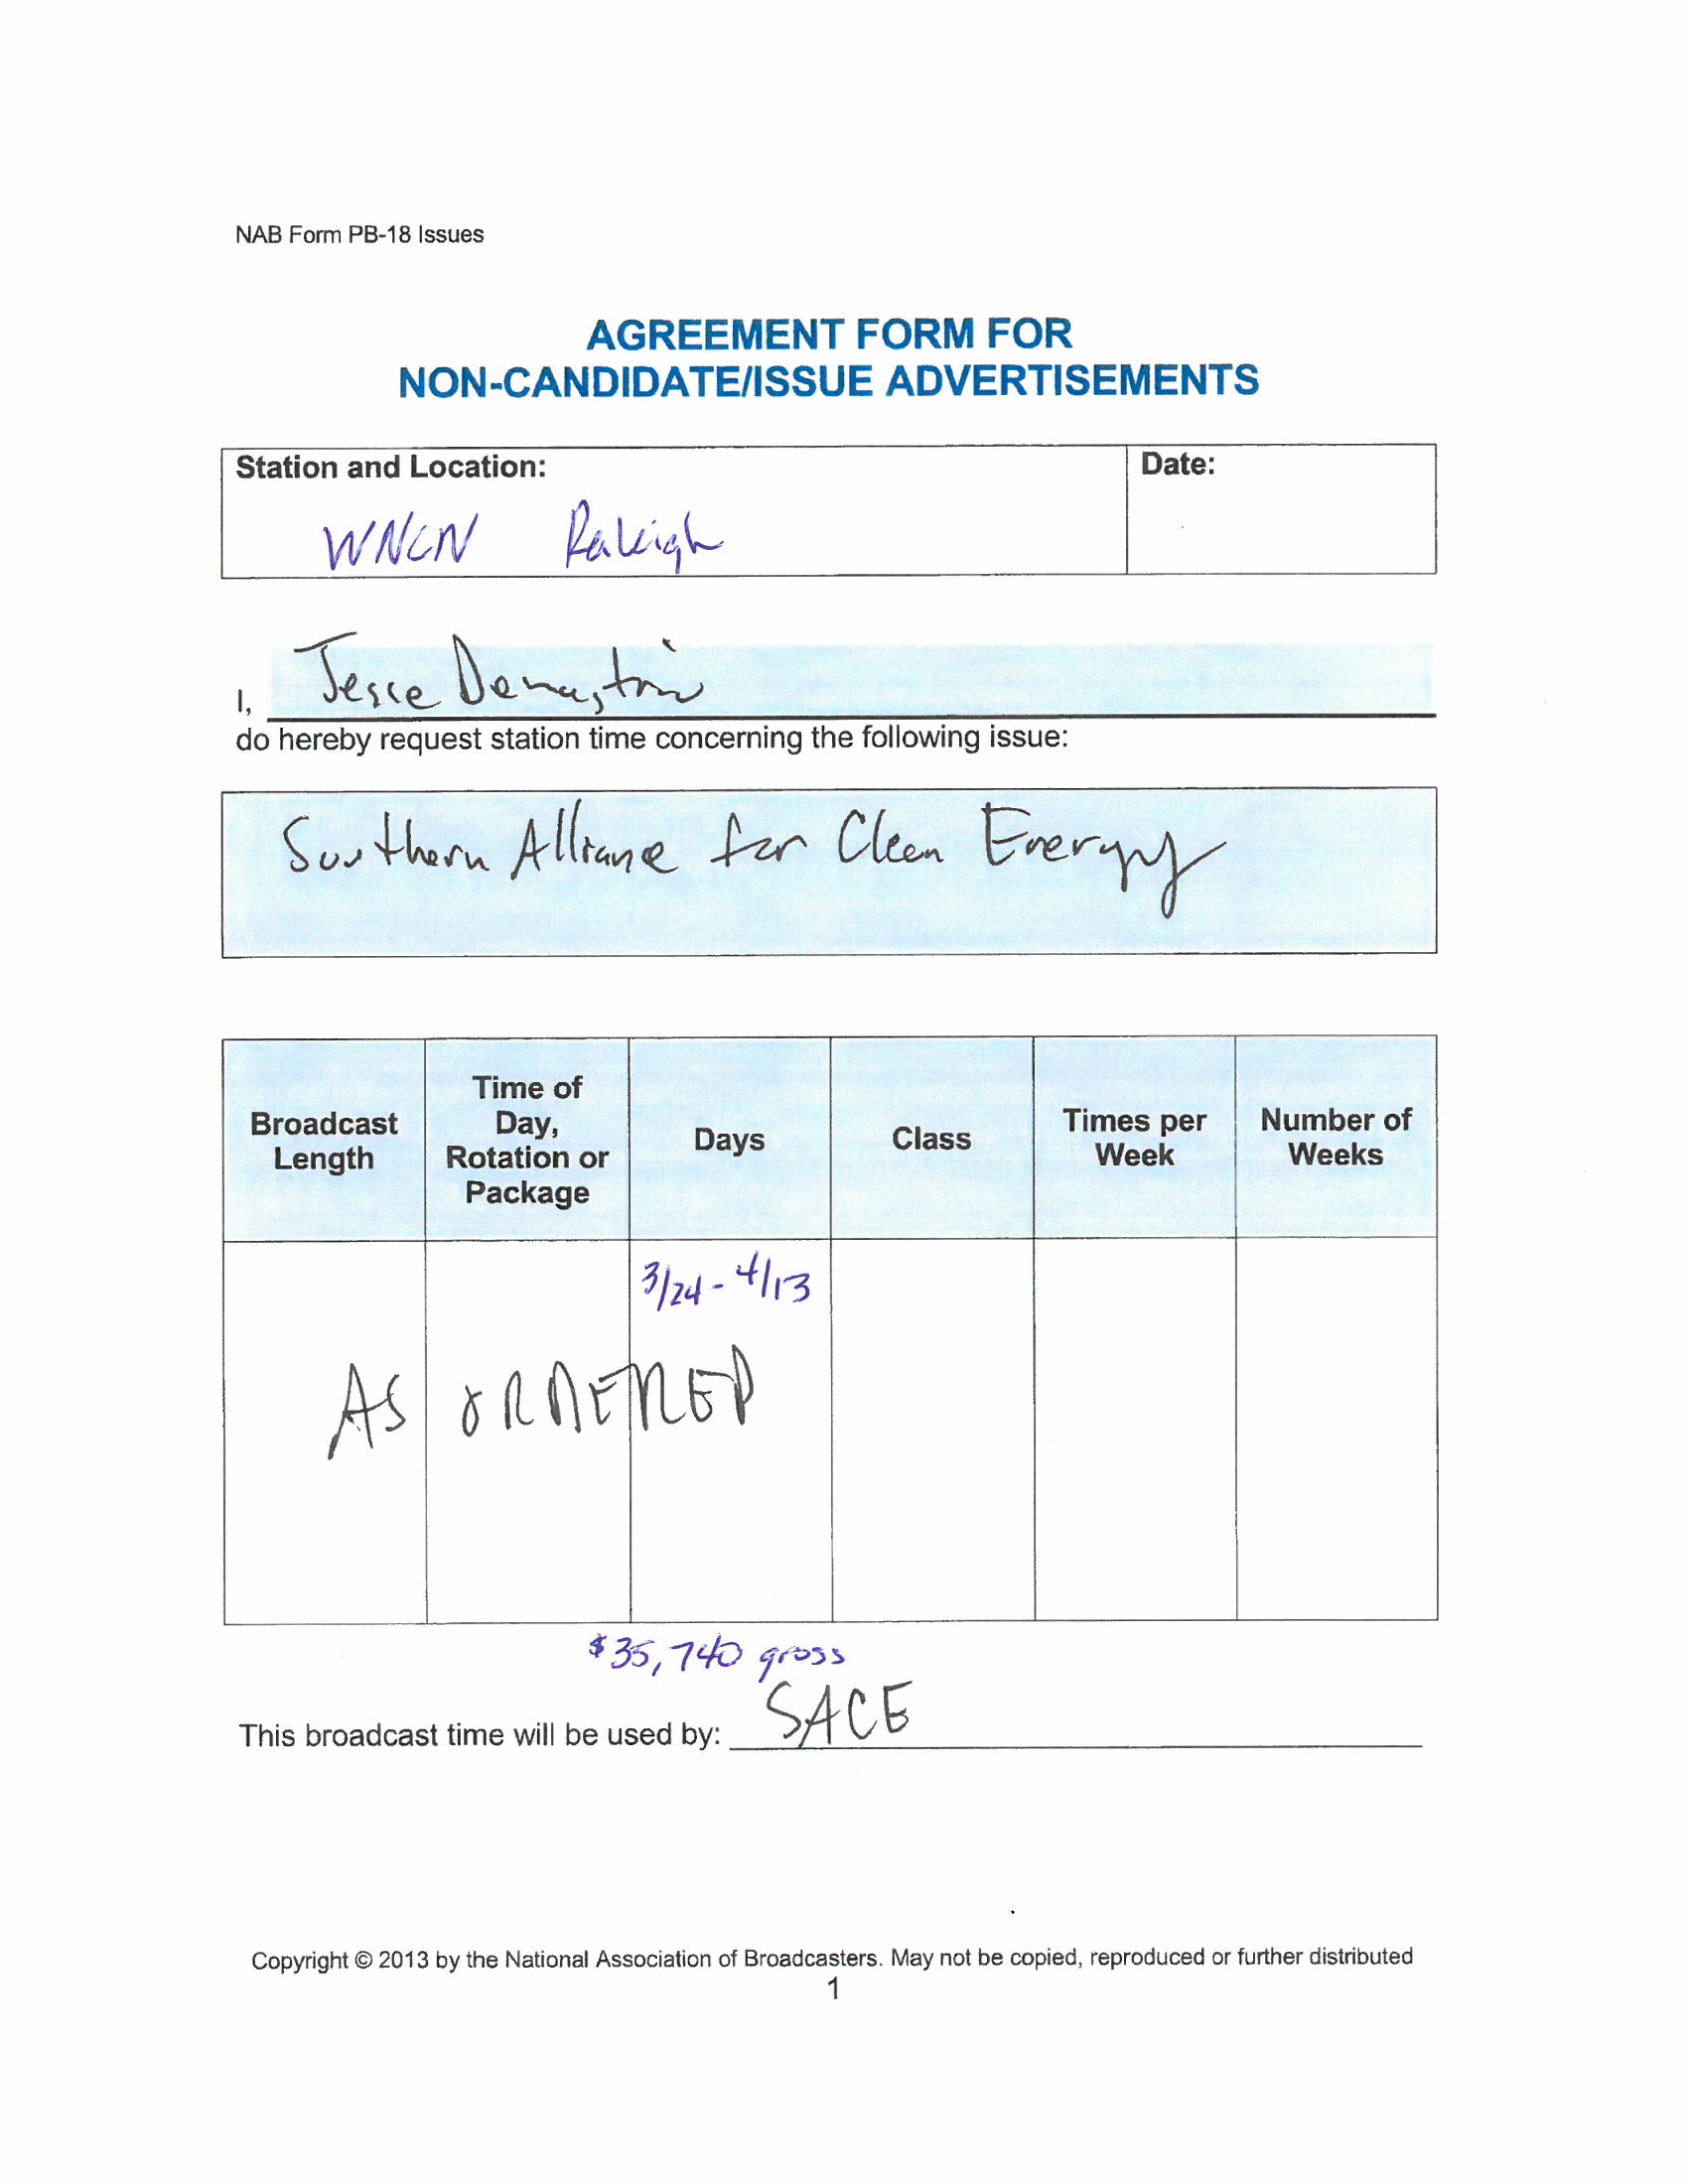 NAB Form PB-18 Issues
AGREEMENT FORM FOR
NON-CANDIDATE/ISSUE ADVERTISEMENTS
Station and Location:
Date:
WNCN Raleigh
I, Jesse Demastrio
do hereby request station time concerning the following issue:
Southern Alliance for Clean Energy
Broadcast Length
Time of Day, Rotation or Package
Days
Class
Times per Week
Number of Weeks
3/24 - 4/13
AS ORDERED
$35,740 gross
This broadcast time will be used by: SACE
Copyright © 2013 by the National Association of Broadcasters. May not be copied, reproduced or further distributed
1